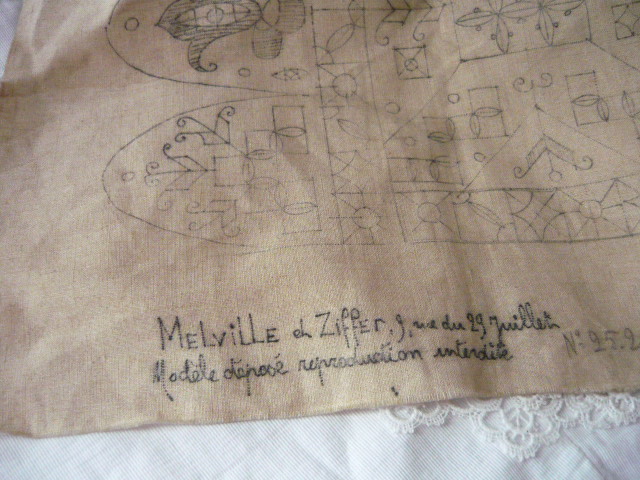 MELVILLE & Ziffer, 9, rue du 29 Juillet
Modèle déposé reproduction interdite N° 252